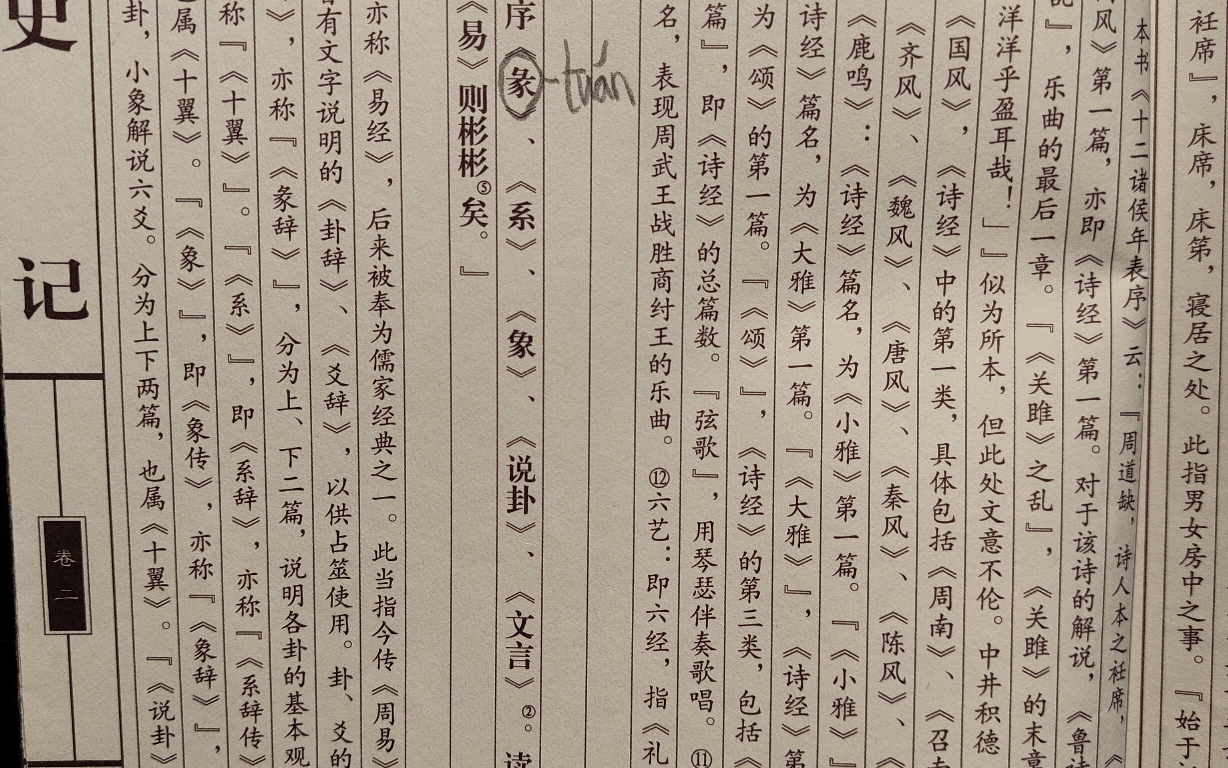 衽席』，床席，床笫，寝居之处。此指男女房中之事。『始于
本书《十二诸侯年表序》云：『周道缺，诗人本之衽席，《
风》第一篇，亦即《诗经》第一篇。对于该诗的解说，《鲁诗
乱』，乐曲的最后一章。『《关雎》之乱』，《关雎》的末章
洋洋乎盈耳哉！』似为所本，但此处文意不伦。中井积德
《国风》，《诗经》中的第一类，具体包括《周南》、《召南
《齐风》、《魏风》、《唐风》、《秦风》、《陈风》、
《鹿鸣》：《诗经》篇名，为《小雅》第一篇。『《小雅》
诗经》篇名，为《大雅》第一篇。『《大雅》』，《诗经》第
为《颂》的第一篇。『《颂》』，《诗经》的第三类，包括
篇』，即《诗经》的总篇数。『弦歌』，用琴瑟伴奏歌唱。⑪
名，表现周武王战胜商纣王的乐曲。⑫六艺：即六经，指《礼
tuán
序《彖》、《系》、《象》、《说卦》、《文言》②。读
《易》则彬彬⑤矣。』
亦称《易经》，后来被奉为儒家经典之一。此当指今传《周易》
有文字说明的《卦辞》、《爻辞》，以供占筮使用。卦、爻的
》，亦称『《彖辞》』，分为上、下二篇，说明各卦的基本观
称『《十翼》』。『《系》』，即《系辞》，亦称『《系辞传》
属《十翼》。『《象》』，即《象传》，亦称『《象辞》』，
卦，小象解说六爻。分为上下两篇，也属《十翼》。『《说卦》
史记
卷二